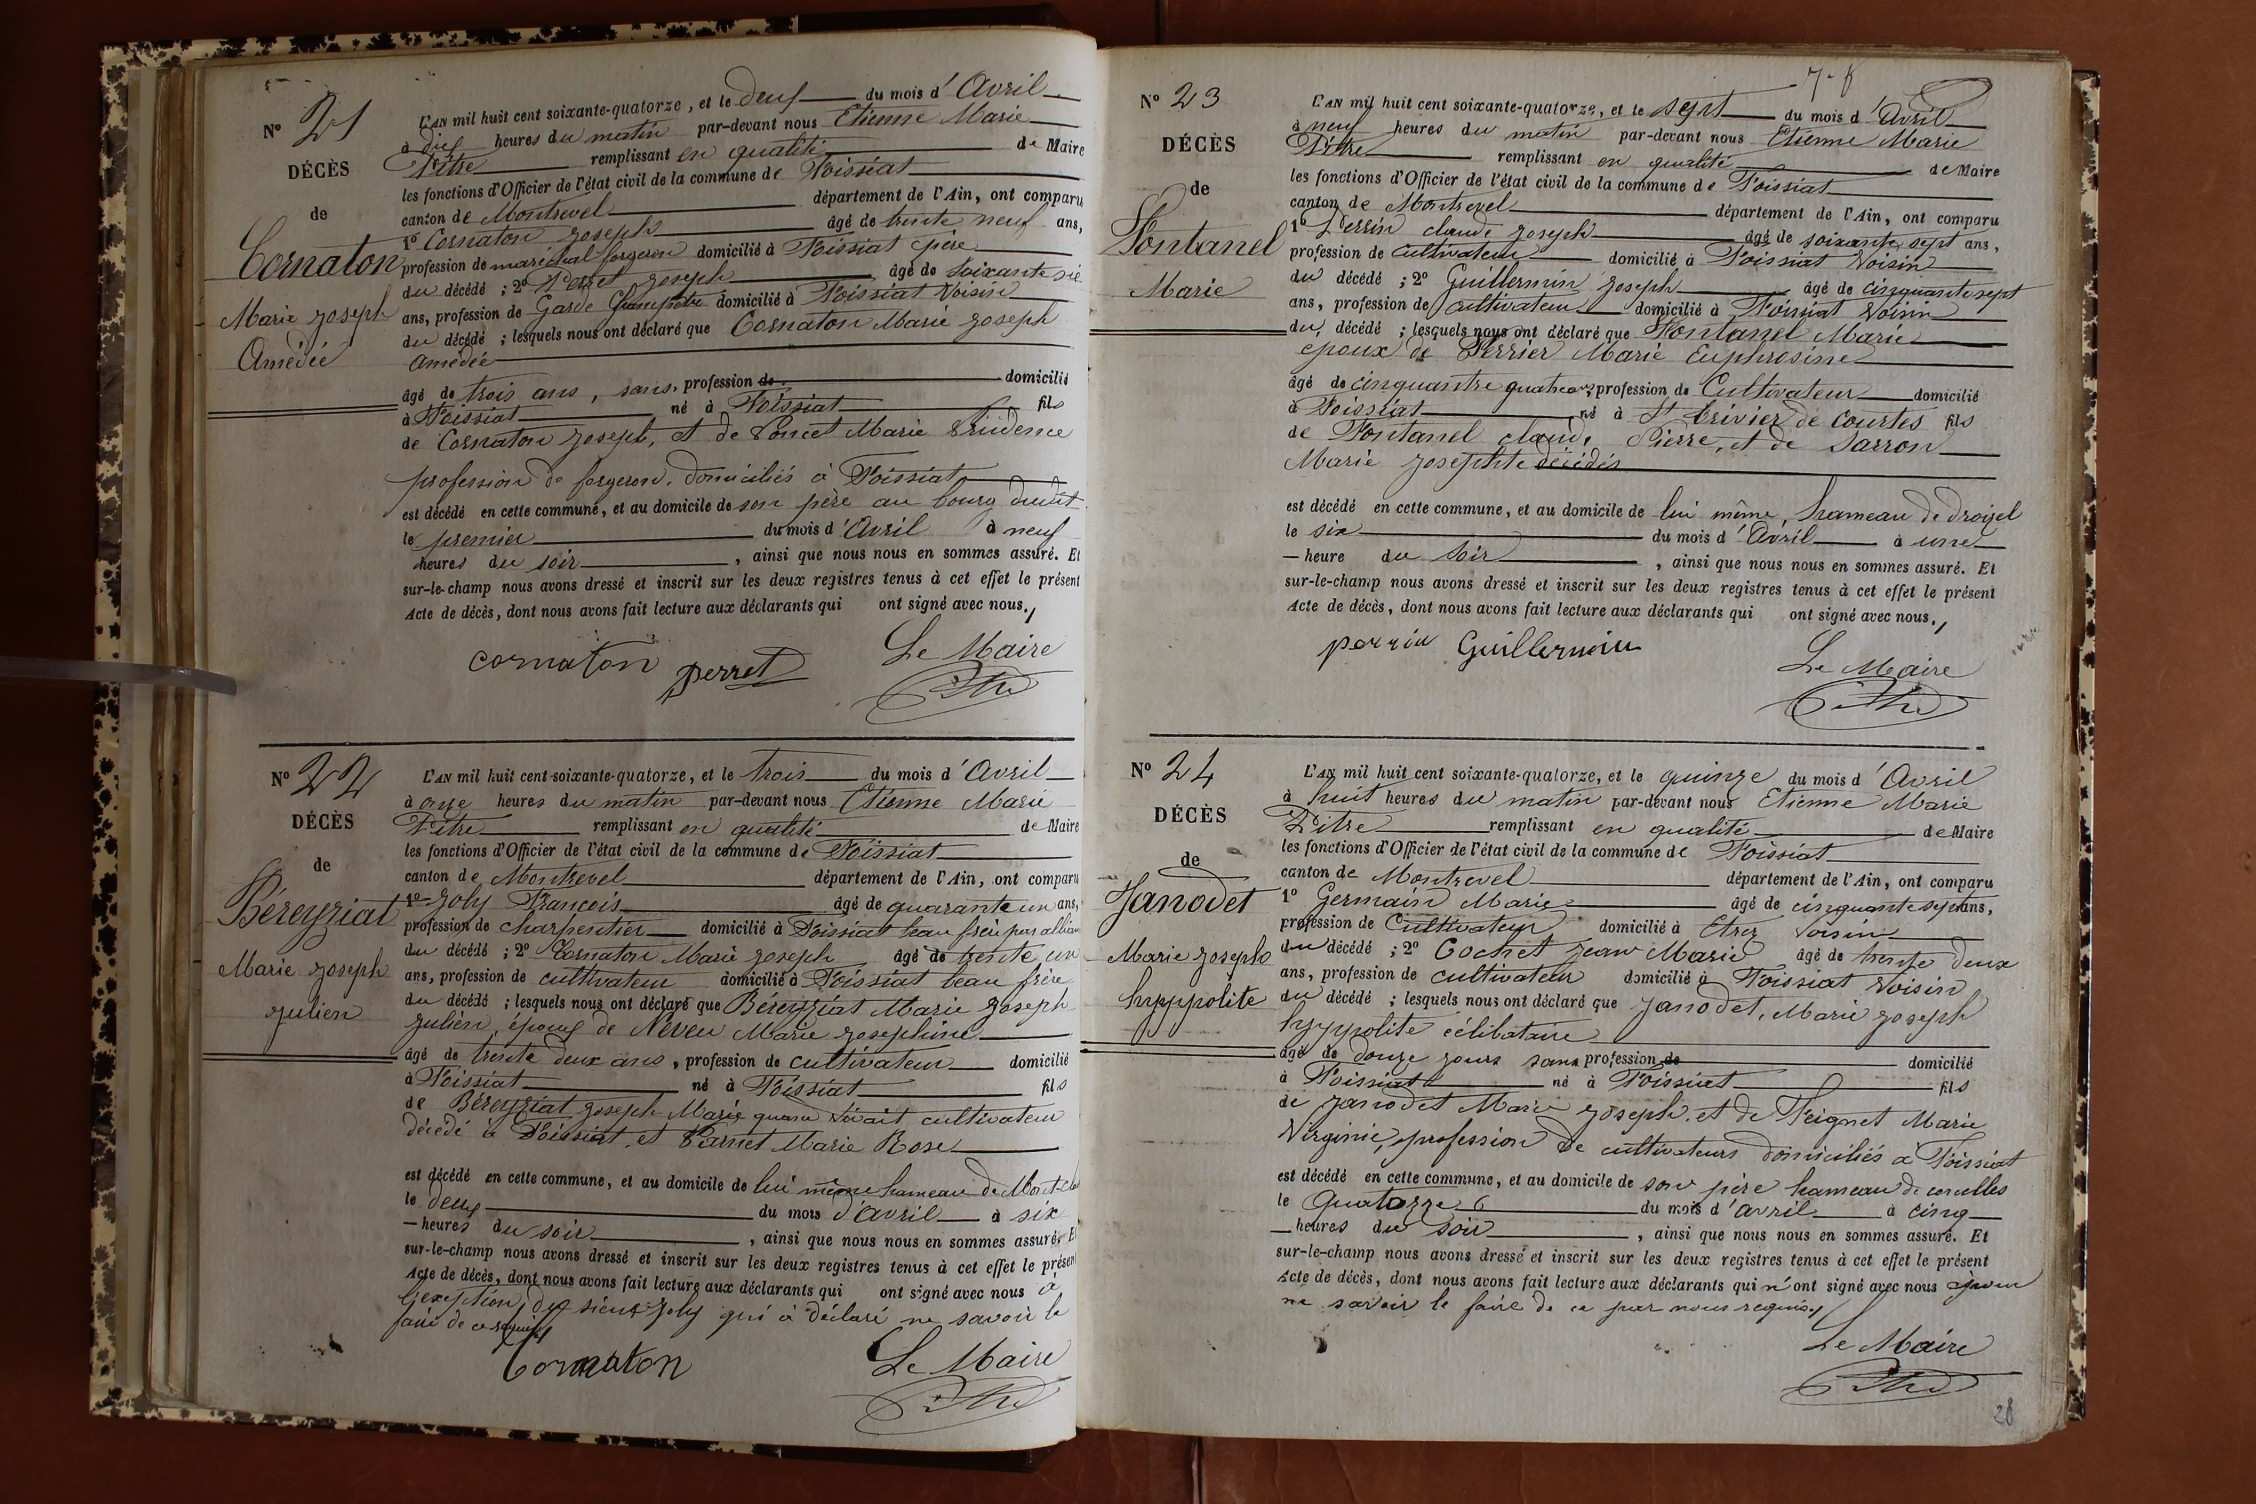 N° 21
DÉCÈS
de
Cornaton
Marie Joseph
Amédée
L'AN mil huit cent soixante-quatorze, et le deux du mois d'Avril
à dix heures du matin par-devant nous Etienne Marie
Pitre remplissant en qualité de Maire
les fonctions d'Officier de l'état civil de la commune de Foissiat
canton de Montrevel département de l'Ain, ont comparu
1° Cornaton Joseph âgé de trente neuf ans,
profession de maréchal forgeron domicilié à Foissiat père
du décédé ; 2° Perret Joseph âgé de soixante six
ans, profession de Garde Champêtre domicilié à Foissiat Voisin
du décédé ; lesquels nous ont déclaré que Cornaton Marie Joseph
amédée
âgé de trois ans, sans profession de domicilié
à Foissiat né à Foissiat fils
de Cornaton Joseph, et de Poncet Marie Prudence
profession de forgeron, domiciliés à Foissiat
est décédé en cette commune, et au domicile de son père au bourg dudit
le premier du mois d'Avril à neuf
heures du soir, ainsi que nous nous en sommes assuré. Et
sur-le-champ nous avons dressé et inscrit sur les deux registres tenus à cet effet le présent
Acte de décès, dont nous avons fait lecture aux déclarants qui ont signé avec nous.
cornaton perret Le Maire
Pitre
N° 22
DÉCÈS
de
Béreyziat
Marie Joseph
Julien
L'AN mil huit cent soixante-quatorze, et le trois du mois d'Avril
à onze heures du matin par-devant nous Etienne Marie
Pitre remplissant en qualité de Maire
les fonctions d'Officier de l'état civil de la commune de Foissiat
canton de Montrevel département de l'Ain, ont comparu
1° Joly François âgé de quarante un ans,
profession de charpentier domicilié à Foissiat beau frère par allian
du décédé ; 2° Cornaton Marie Joseph âgé de trente un
ans, profession de cultivateur domicilié à Foissiat beau frère
du décédé ; lesquels nous ont déclaré que Béreyziat Marie Joseph
Julien, époux de Neveu Marie Josephine
âgé de trente deux ans, profession de cultivateur domicilié
à Foissiat né à Foissiat fils
de Béreyziat Joseph Marie quand vivait cultivateur
décédé à Foissiat, et Marie Rose
est décédé en cette commune, et au domicile de lui même hameau de
le deux du mois d'avril à six
heures du soir, ainsi que nous nous en sommes assuré. Et
sur-le-champ nous avons dressé et inscrit sur les deux registres tenus à cet effet le présent
Acte de décès, dont nous avons fait lecture aux déclarants qui ont signé avec nous à
l'exception du sieur Joly qui à déclaré ne savoir le
faire de ce requis
Cornaton Le Maire
Pitre
7-8
N° 23
DÉCÈS
de
Fontanel
Marie
L'AN mil huit cent soixante-quatorze, et le sept du mois d'Avril
à neuf heures du matin par-devant nous Etienne Marie
Pitre remplissant en qualité de Maire
les fonctions d'Officier de l'état civil de la commune de Foissiat
canton de Montrevel département de l'Ain, ont comparu
1° Perrin claude Joseph âgé de soixante sept ans,
profession de cultivateur domicilié à Foissiat Voisin
du décédé ; 2° Guillermin Joseph âgé de cinquante sept
ans, profession de cultivateur domicilié à Foissiat Voisin
du décédé ; lesquels nous ont déclaré que Fontanel Marie
époux de Perrier Marie Euphrosine
âgé de cinquante quatre ans, profession de Cultivateur domicilié
à Foissiat né à St trivier de courtes fils
de Fontanel claude Pierre, et de Sarron
Marie Josephte décédés
est décédé en cette commune, et au domicile de lui même, hameau de
le six du mois d'Avril à une
heure du soir, ainsi que nous nous en sommes assuré. Et
sur-le-champ nous avons dressé et inscrit sur les deux registres tenus à cet effet le présent
Acte de décès, dont nous avons fait lecture aux déclarants qui ont signé avec nous.
perrin Guillermin
Le Maire
Pitre
N° 24
DÉCÈS
de
Janodet
Marie Joseph
hyppolite
L'AN mil huit cent soixante-quatorze, et le quinze du mois d'Avril
à huit heures du matin par-devant nous Etienne Marie
Pitre remplissant en qualité de Maire
les fonctions d'Officier de l'état civil de la commune de Foissiat
canton de Montrevel département de l'Ain, ont comparu
1° Germain Marie âgé de cinquante sept ans,
profession de Cultivateur domicilié à Etrez Voisin
du décédé ; 2° Cochet Jean Marie âgé de trente deux
ans, profession de cultivateur domicilié à Foissiat Voisin
du décédé ; lesquels nous ont déclaré que Janodet, Marie Joseph
hyppolite célibataire
âgé de douze jours sans profession de domicilié
à Foissiat né à Foissiat fils
de Janodet Marie Joseph, et de Feignet Marie
Virginie, profession de cultivateurs domiciliés à Foissiat
est décédé en cette commune, et au domicile de son père hameau de corcelles
le Quatorze du mois d'avril à cinq
heures du soir, ainsi que nous nous en sommes assuré. Et
sur-le-champ nous avons dressé et inscrit sur les deux registres tenus à cet effet le présent
Acte de décès, dont nous avons fait lecture aux déclarants qui n'ont signé avec nous pour
ne savoir le faire de ce par nous requis
Le Maire
Pitre
28